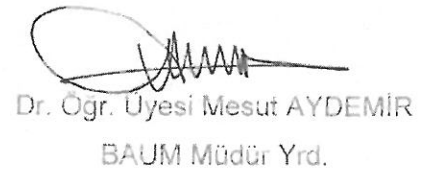 Dr. Öğr. Üyesi Mesut AYDEMİR
BAUM Müdür Yrd.